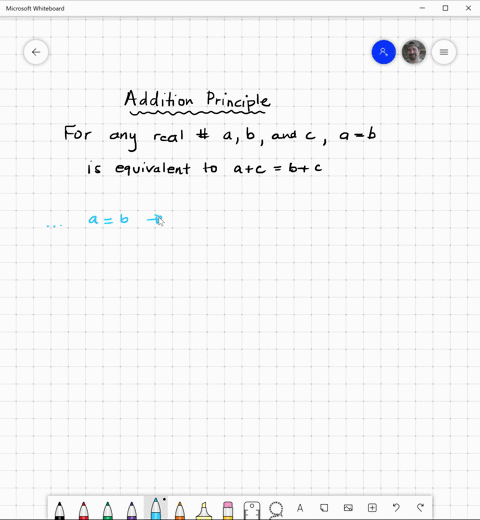 Microsoft Whiteboard
Addition Principle
For any real # a, b, and c, a=b
is equivalent to a+c = b+c
... a = b
A